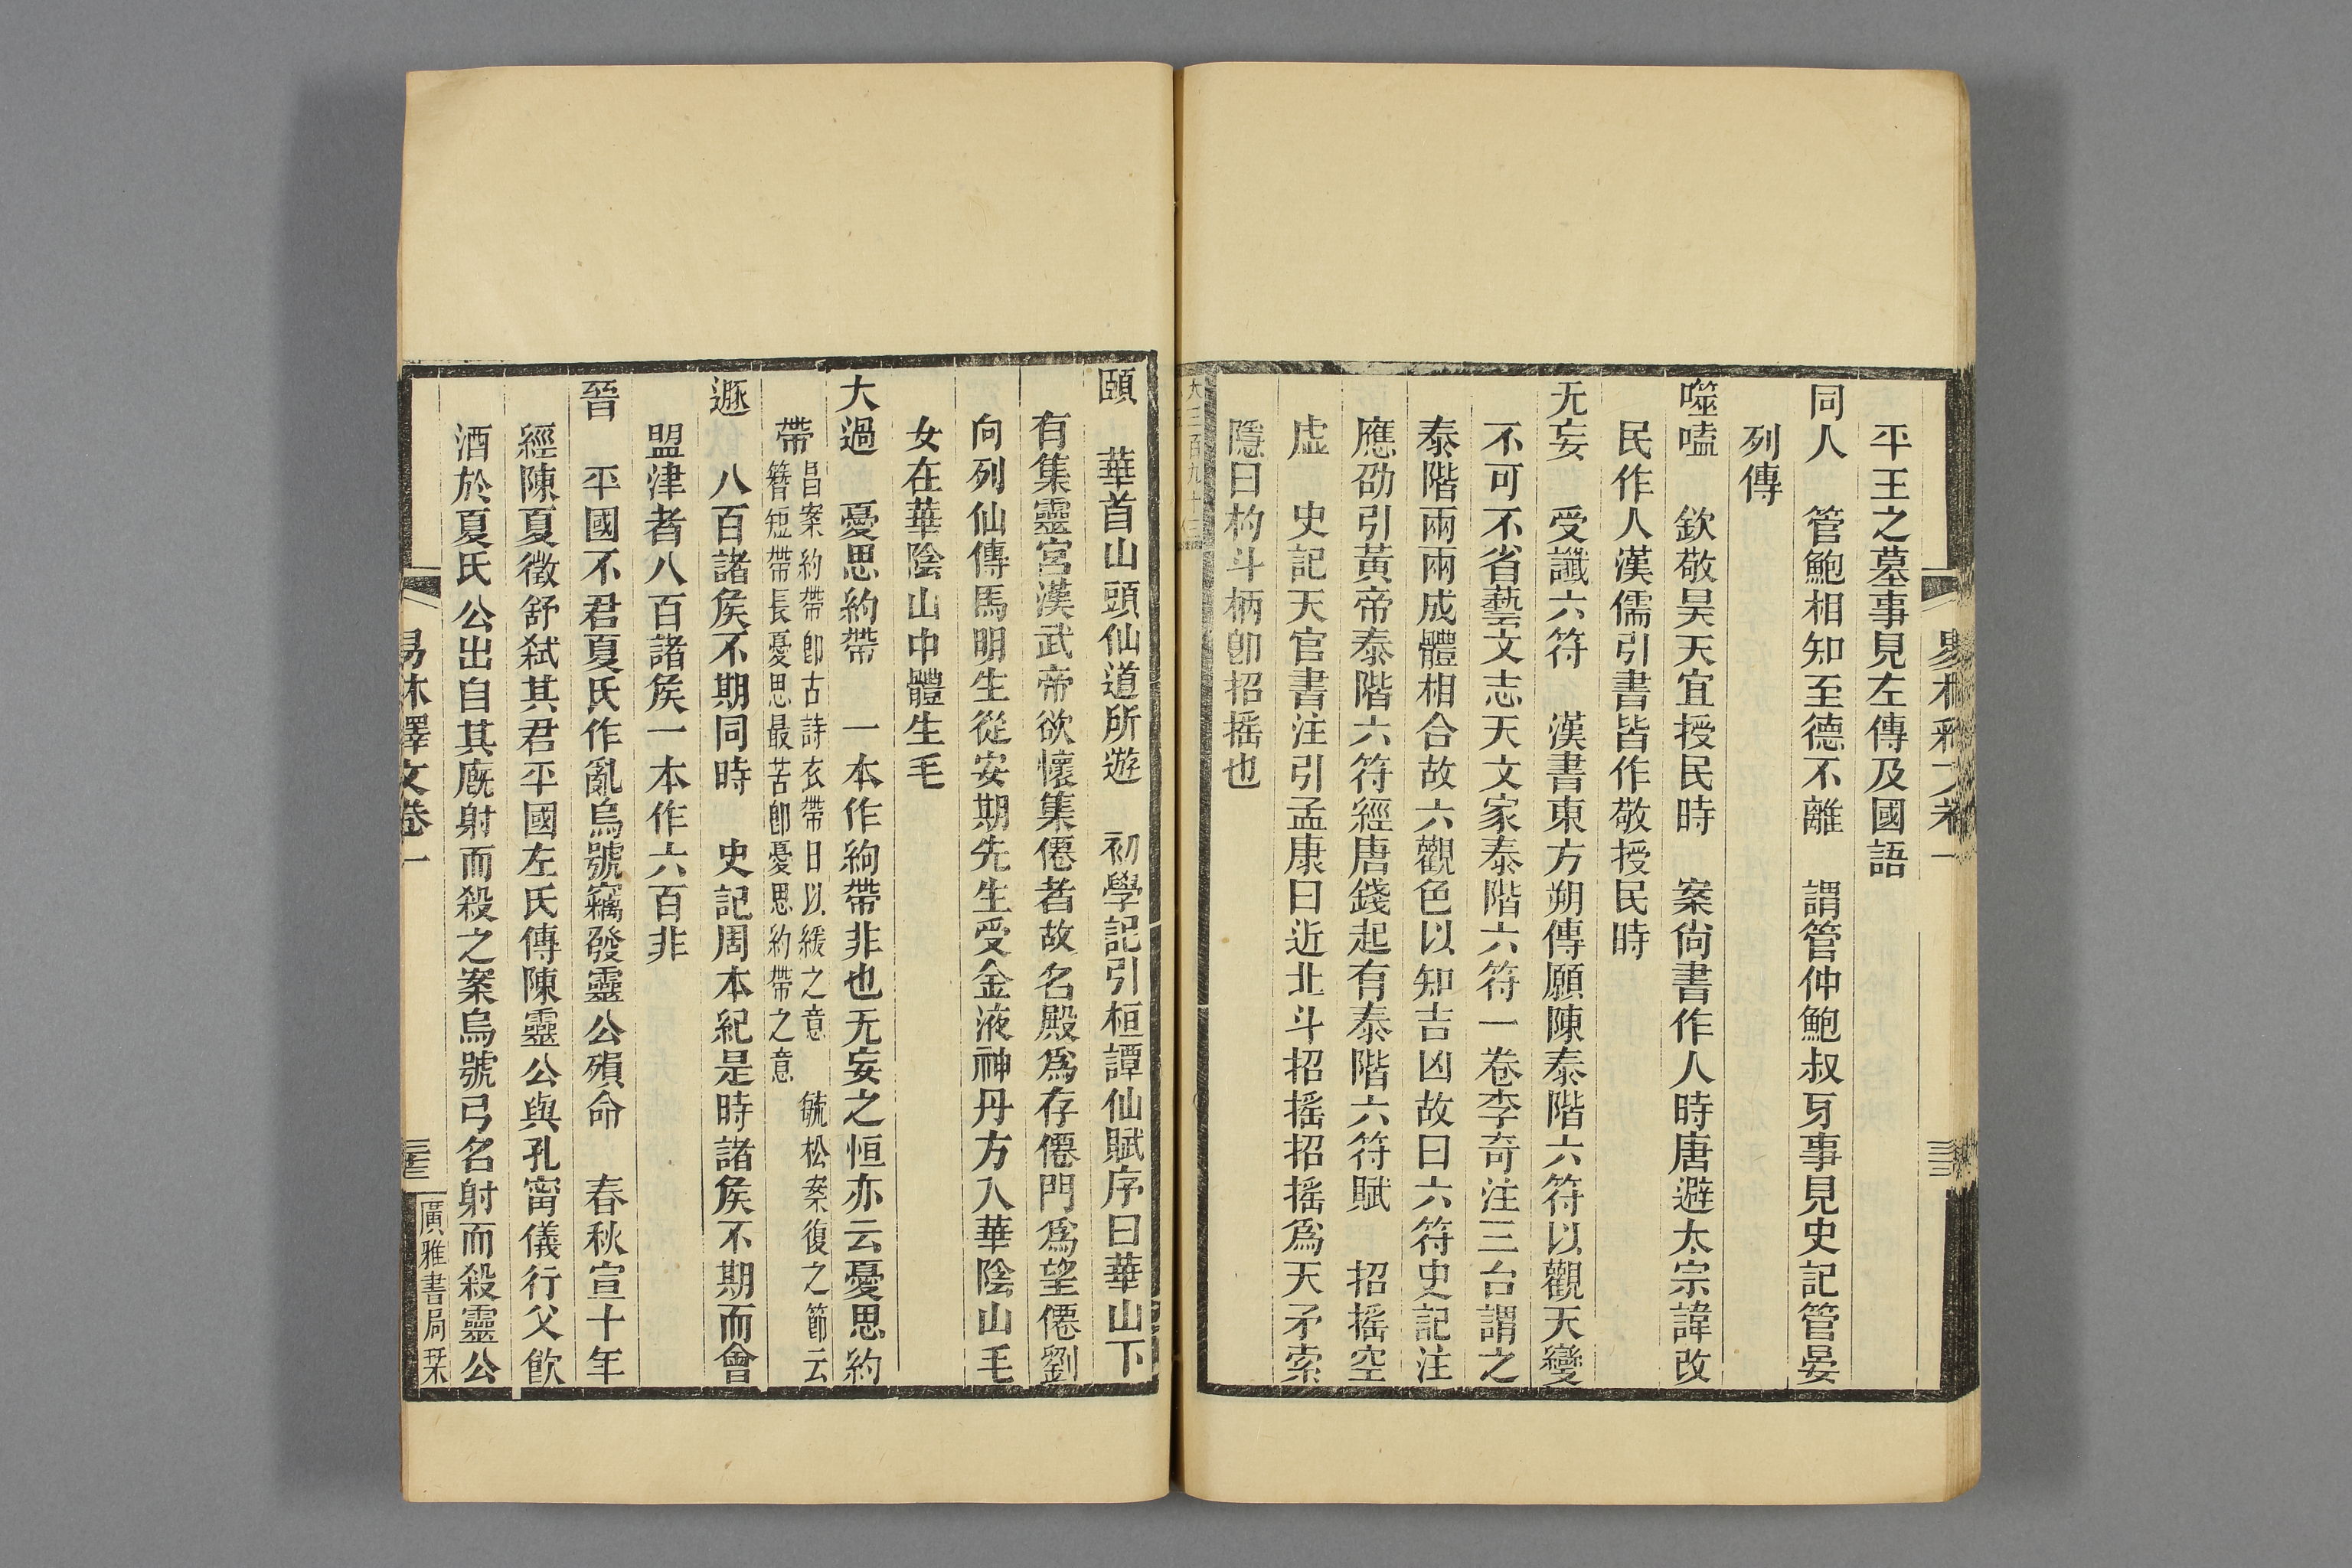 平王之墓事見左傳及國語
同人　管鮑相知至德不離　謂管仲鮑叔牙事見史記管晏
列傳
噬嗑　欽敬昊天宜授民時　案尙書作人時唐避太宗諱改
民作人漢儒引書皆作敬授民時
无妄　受讖六符　漢書東方朔傳願陳泰階六符以觀天變
不可不省藝文志天文家泰階六符一卷李奇注三台謂之
泰階兩兩成體相合故六觀色以知吉凶故曰六符史記注
應劭引黃帝泰階六符經唐錢起有泰階六符賦　招搖空
虛　史記天官書注引孟康曰近北斗招搖招搖爲天矛索
隱曰杓斗柄卽招搖也
頤　華首山頭仙道所遊　初學記引桓譚仙賦序曰華山下
有集靈宮漢武帝欲懷集僊者故名殿爲存僊門爲望僊劉
向列仙傳馬明生從安期先生受金液神丹方入華陰山毛
女在華陰山中體生毛
大過　憂思約帶　一本作絇帶非也无妄之恒亦云憂思約
帶昌案約帶卽古詩衣帶日以緩之意　毓松案復之節云
簪短帶長憂思最苦卽憂思約帶之意
遯　八百諸矦不期同時　史記周本紀是時諸矦不期而會
盟津者八百諸矦一本作六百非
晉　平國不君夏氏作亂烏號竊發靈公殞命　春秋宣十年
經陳夏徵舒弑其君平國左氏傳陳靈公與孔甯儀行父飮
酒於夏氏公出自其廐射而殺之案烏號弓名射而殺靈公
易林釋文卷一
廣雅書局栞